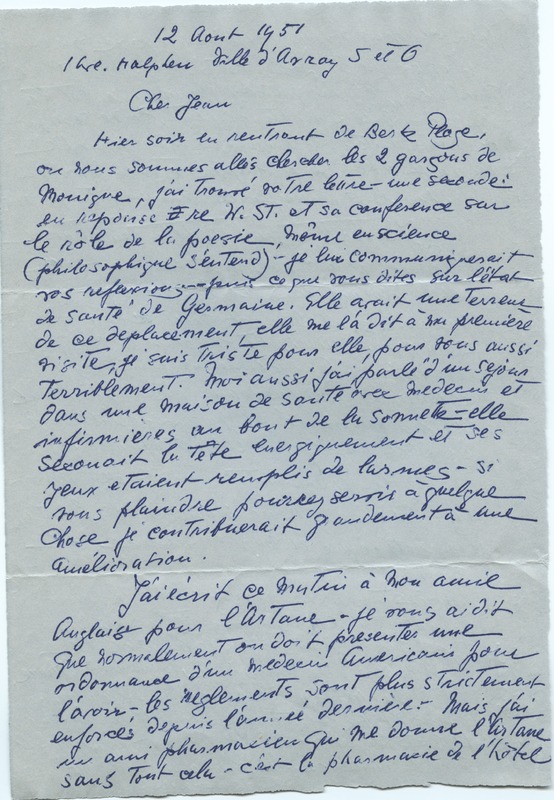 12 Aout 1951
1 Ave. Halphen Ville d'Avray S et O
Cher Jean
Hier soir en rentrant de Berk Plage,
ou nous sommes allés chercher les 2 garçons de
Monique, j'ai trouvé votre lettre - une seconde:
en reponse re W. ST. et sa conference sur
le rôle de la poesie, même en science
(philosophique s'entend) - je lui communiquerait
vos reflexions - puis ce que vous dites sur l'état
de santé de Germaine. Elle avait une terreur
de ce deplacement, elle me l'a dit à ma première
visite, je suis triste pour elle, pour vous aussi
terriblement. Moi aussi j'ai parlé d'un sejour
dans une maison de santé avec medecin et
infirmières au bout de la sonnette - elle
secouait la tête energiquement et ses
yeux etaient remplis de larmes - si
vous plaindre pouvez servir à quelque
chose je contribuerait grandement à une
amélioration.
J'ai écrit ce matin à mon amie
Anglaise pour l'Artane - je vous ai dit
que normalement on doit presenter une
ordonnance d'un medecin Americain pour
l'avoir - les reglements sont plus strictement
enforcés depuis l'année dernière - Mais j'ai
un ami pharmacien qui me donne l'Artane
sans tout cela - c'est la pharmacie de l'hôtel